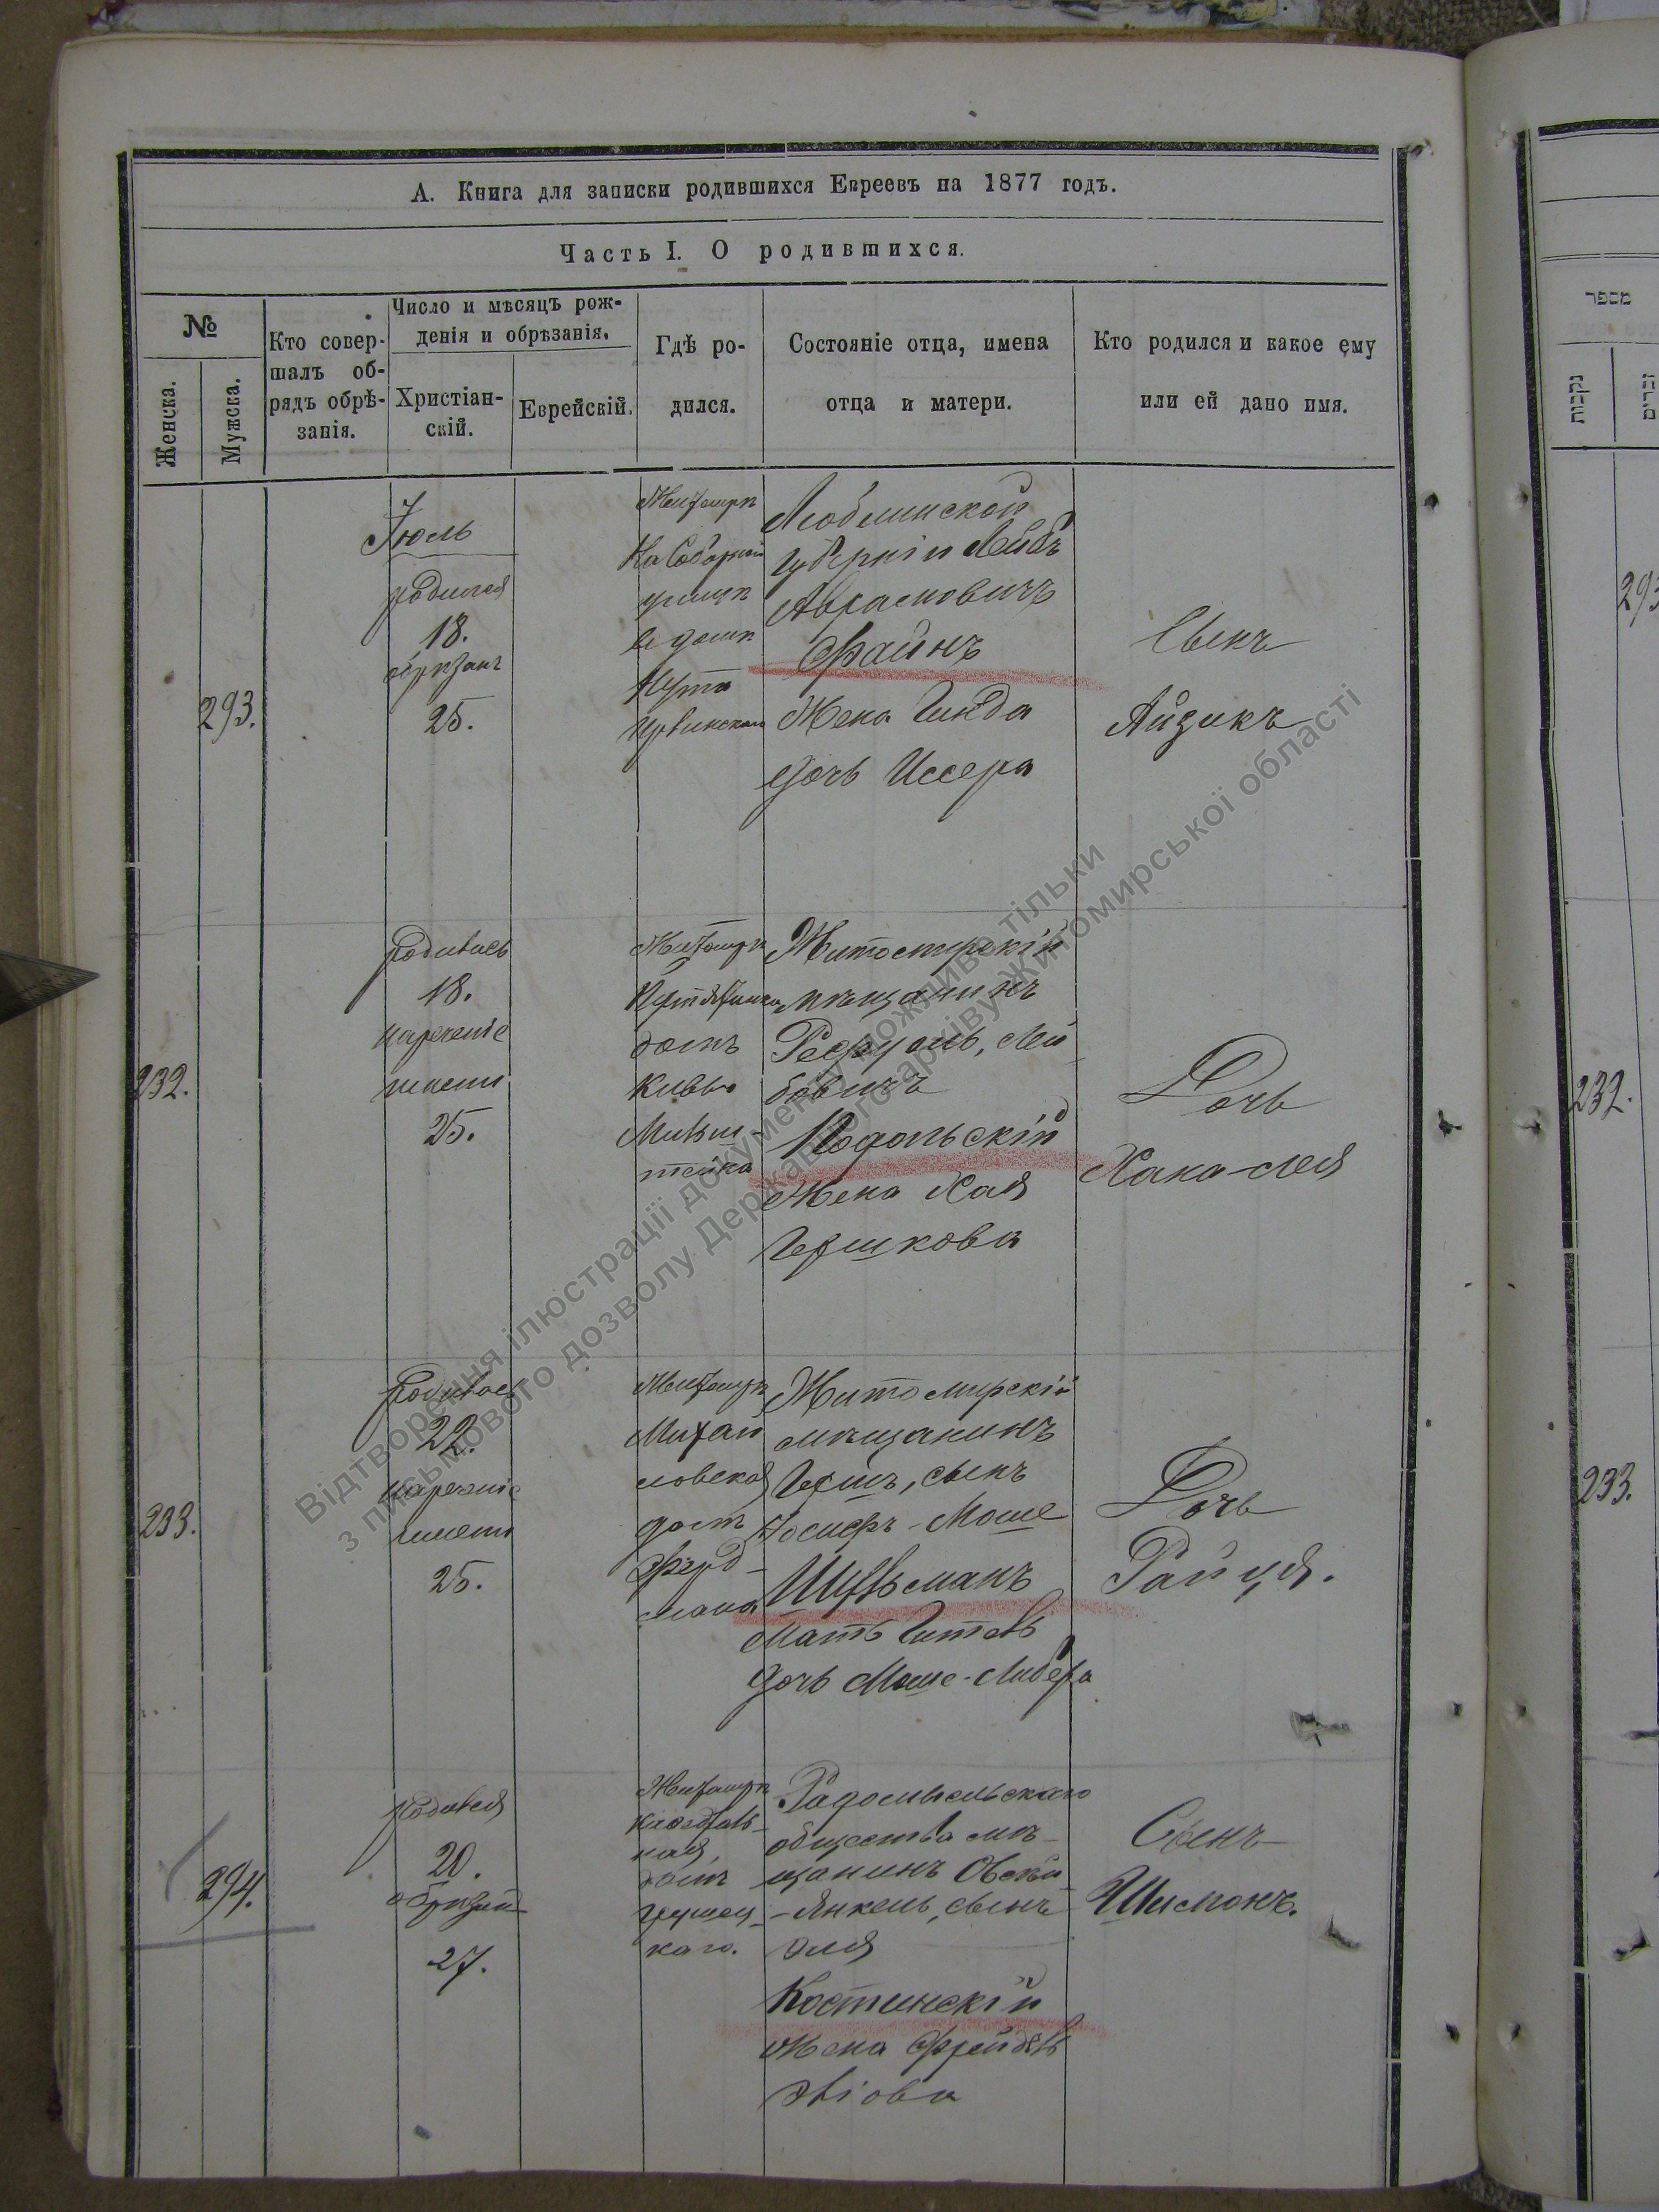 А. Книга для записки родившихся Евреевъ на 1877 годъ.
Часть I. О родившихся.
№
Женска.
Мужска.
Кто совер-
шалъ об-
рядъ обрѣ-
занія.
Число и мѣсяцъ рож-
денія и обрѣзанія.
Христіан-
скій.
Еврейскій.
Гдѣ ро-
дился.
Состояніе отца, имена
отца и матери.
Кто родился и какое ему
или ей дано имя.
293.
Іюль
родился
18.
обрѣзанъ
25.
Житомірѣ
На Соборной
улицѣ
въ домѣ
Люблинской
губерніи Лейбъ
Аврамовичъ
Файнъ
Жена Гинда
дочь Иссера
Сынъ
Айзикъ
232.
родилась
18.
нареченіе
имени
25.
Житомірѣ
домъ
Житомирскій
мѣщанинъ
Рефуель, Лей
бовичъ
Подольскій
Жена Хая
Гершкова
Дочь
Хана-Лея
233.
родилась
22.
нареченіе
имени
25.
Житомірѣ
Михай
ловская
домъ
Житомирскій
мѣщанинъ
Гершъ, сынъ
Іосифъ-Моше
Шульманъ
Мать Гитель
дочь Моше-Либера
Дочь
Райця.
294.
родился
20.
27.
Житомірѣ
домъ
Радомысльскаго
общества мѣ-
щанинъ Овсѣй
-Янкель, сынъ
Эля
Костинскій
жена Фрейдель
Сынъ
Шимонъ.
מספר
נקבות
זכרים
293
232.
233.
Відтворення ілюстрації документу можливо тільки
з письмового дозволу Державного архіву Житомирської області